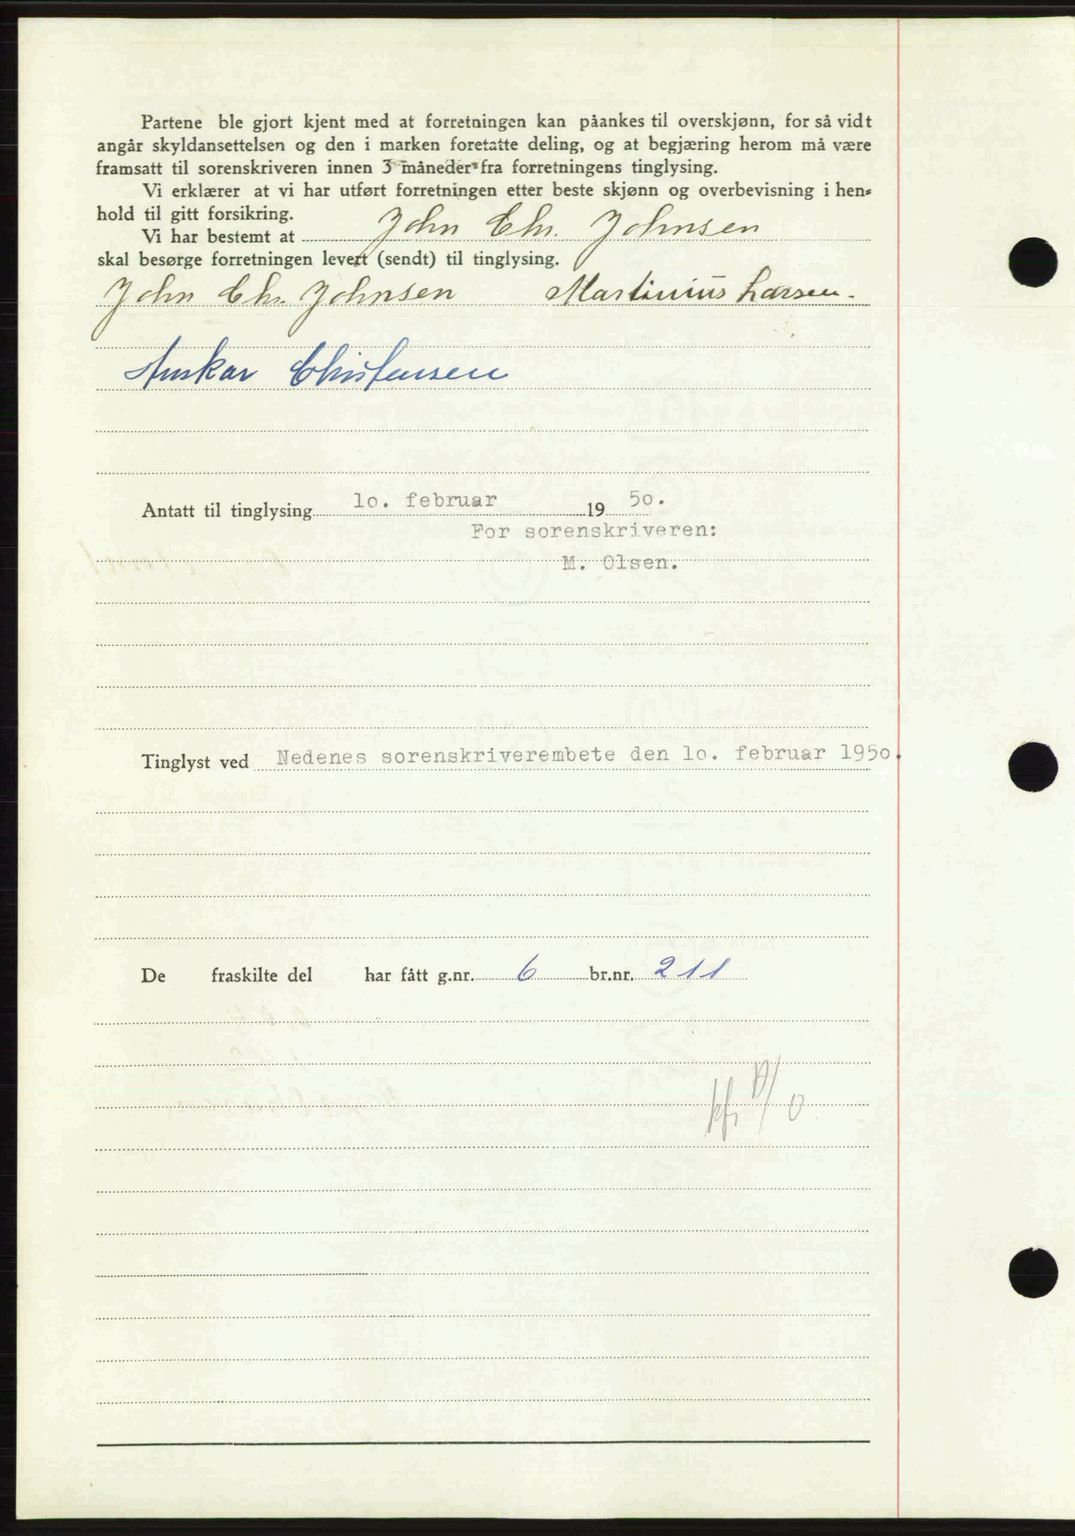 Partene ble gjort kjent med at forretningen kan påankes til overskjønn, for så vidt
angår skyldansettelsen og den i marken foretatte deling, og at begjæring herom må være
framsatt til sorenskriveren innen 3 måneder fra forretningens tinglysing.
Vi erklærer at vi har utført forretningen etter beste skjønn og overbevisning i hen-
hold til gitt forsikring.
Vi har bestemt at John Chr. Johnsen
skal besørge forretningen levert (sendt) til tinglysing.
John Chr. Johnsen Martinius Larsen.
Anskar Christensen
Antatt til tinglysing 10. februar 19 50.
For sorenskriveren:
M. Olsen.
Tinglyst ved Nedenes sorenskriverembete den 10. februar 1950.
De fraskilte del har fått g.nr. 6 br.nr. 211